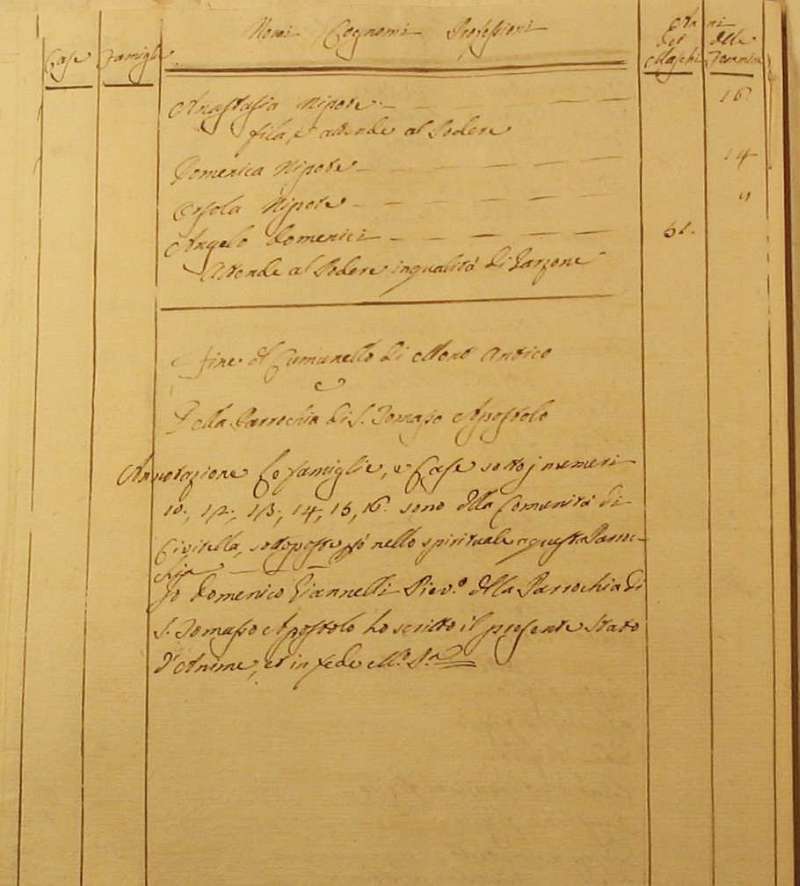 Case Famiglie Nomi Cognomi Professioni Anni dei Maschi Anni delle Femmine
Anastasia Nipote 16
fila, e attende al Podere
Domenica Nipote 14
Orsola Nipote 9
Angelo Domenici
Attende al Podere in qualità di Garzone
Fine del Cumunello di Mont Antico
e
Della Parrochia di S. Tomaso Apostolo
Annotazione Le famiglie, e Case sotto j numeri
10, 12, 13, 14, 15, 16 sono della Comunità di
Civitella, sottoposte però nello spirituale a questa Parro-
chia
Io Domenico Giannelli Piev.º della Parrochia di
S. Tomasso Apostolo ho scritto il presente Stato
d'Anime, et in fede M.º P.ª